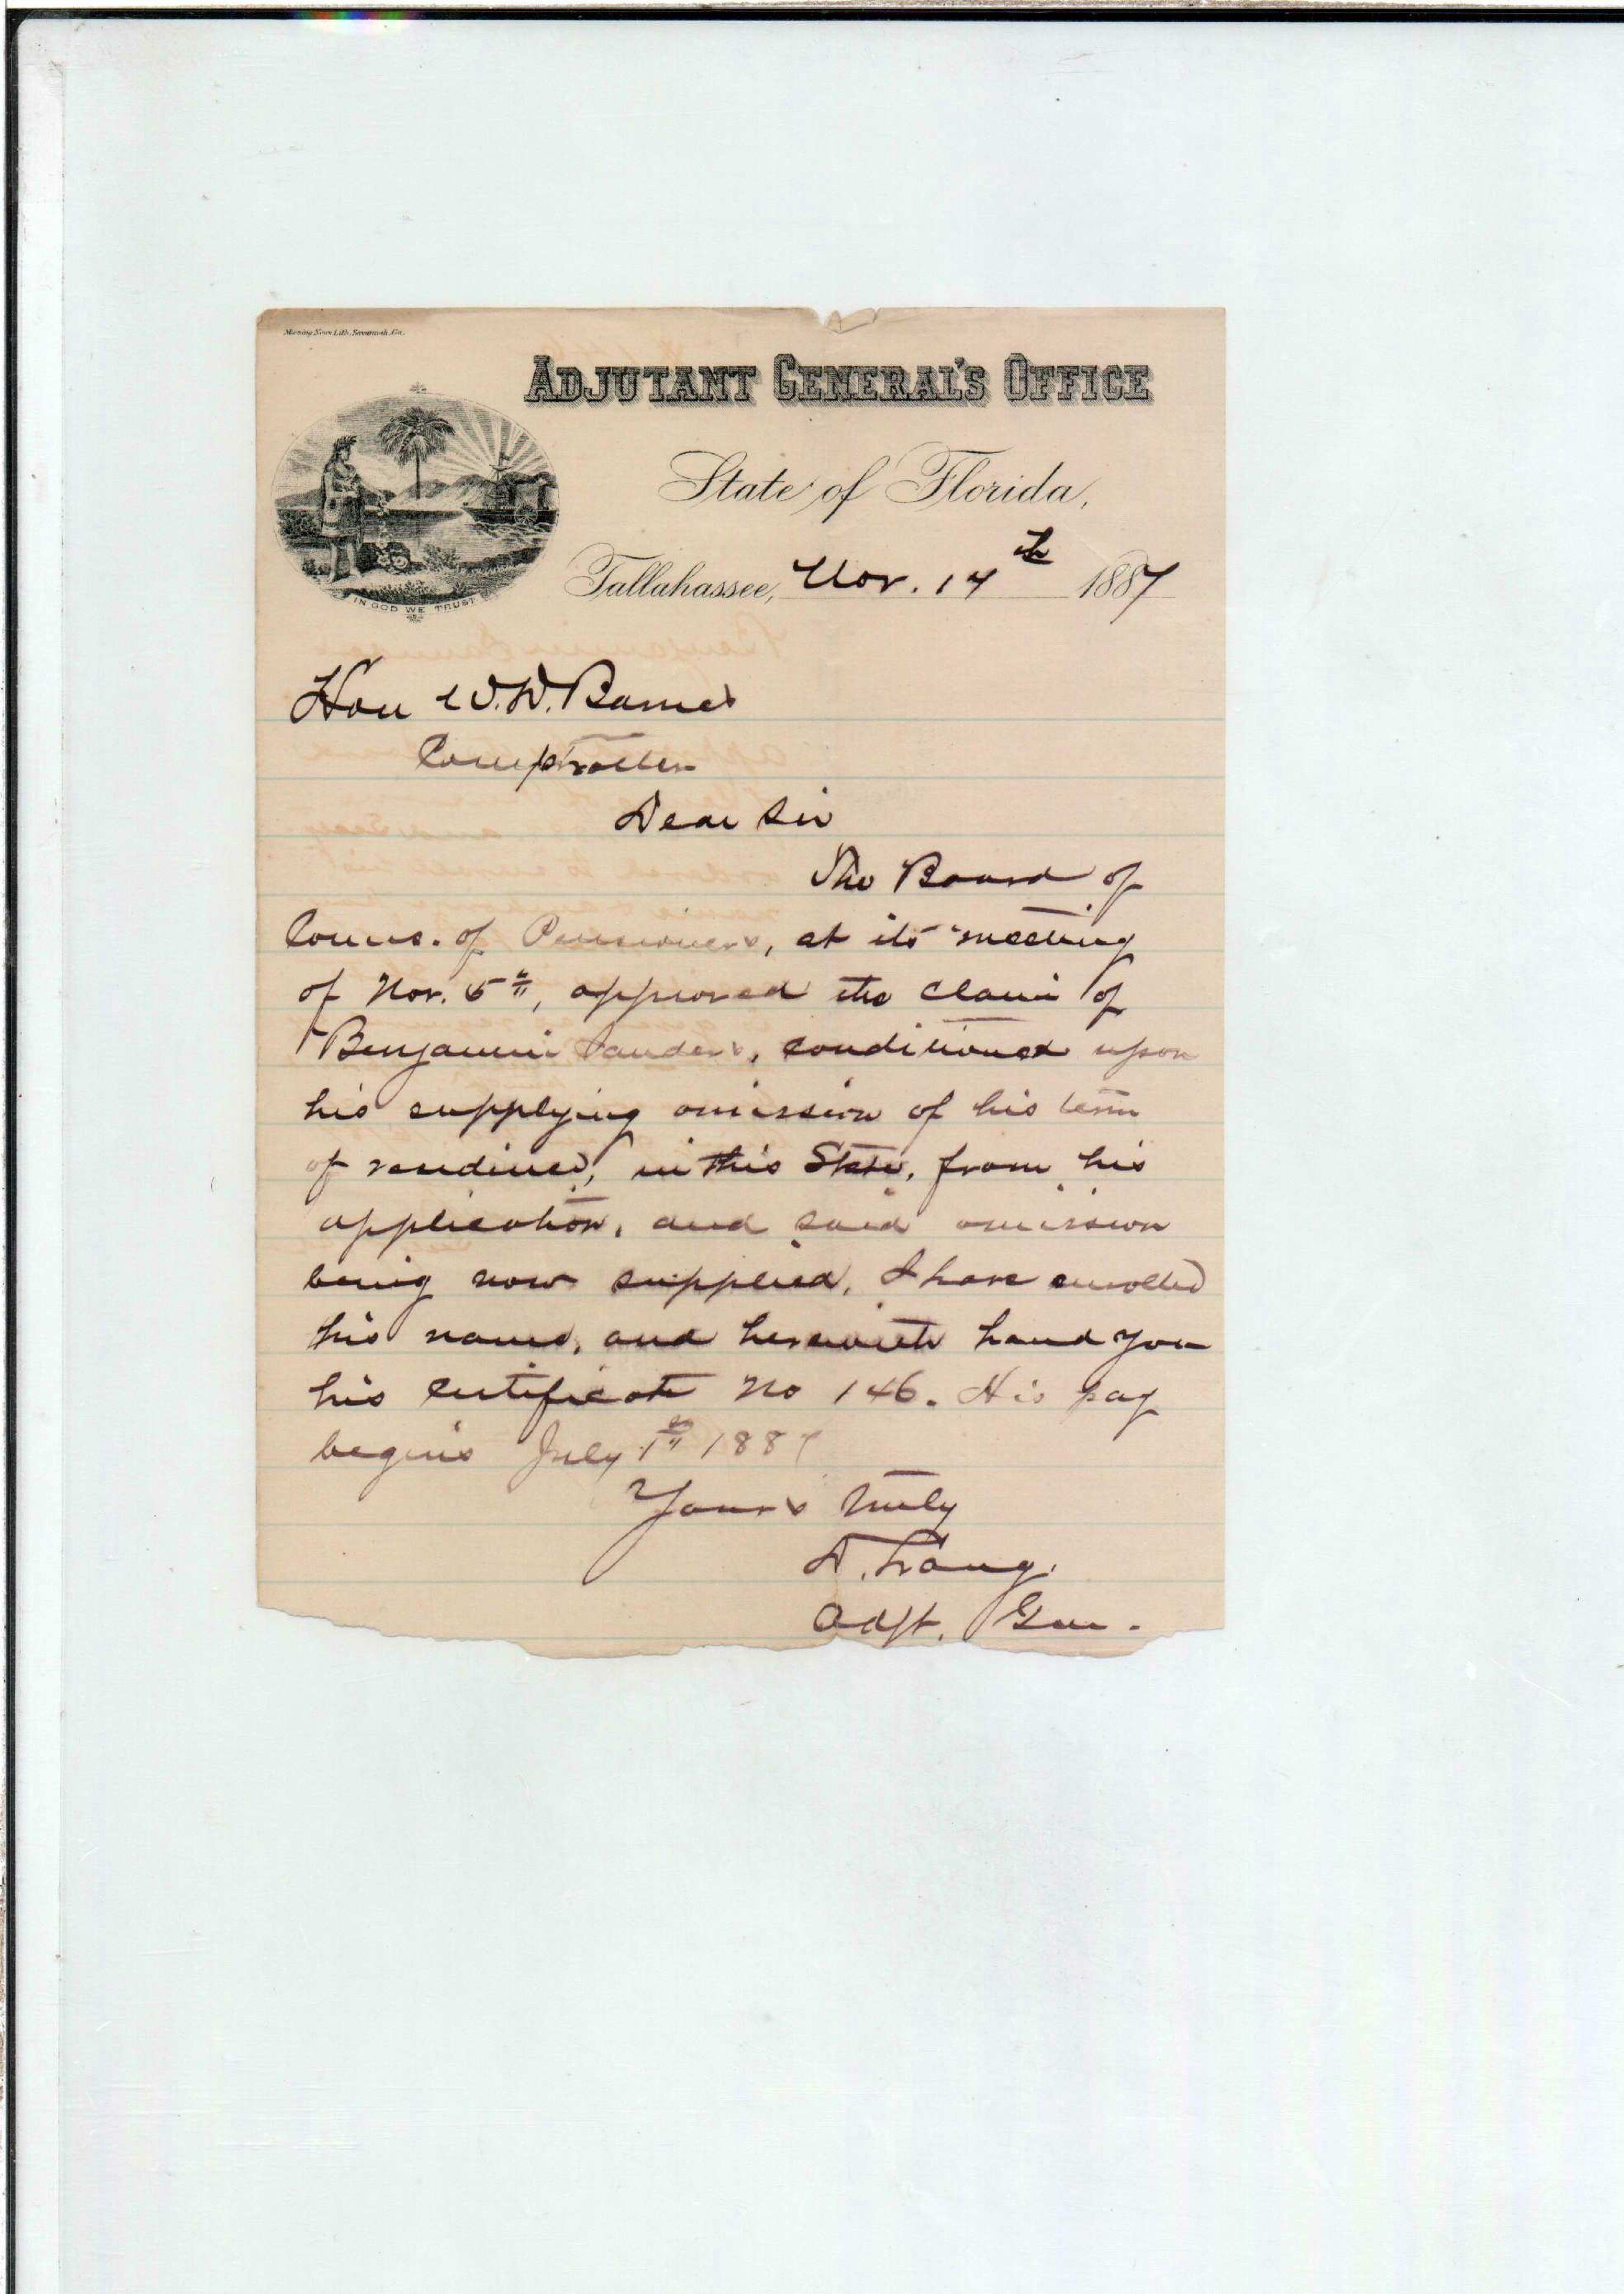 Morning News Lith. Savannah, Ga.
ADJUTANT GENERAL'S OFFICE
State of Florida,
Tallahassee, Nov. 14th 1887
IN GOD WE TRUST
Hon W.D. Barnes
Comptroller
Dear Sir
The Board of
Comrs. of Pensioners, at its meeting
of Nov. 5th, approved the claim of
Benjamin Sanders, conditioned upon
his supplying omission of his term
of residence, in this State, from his
application, and said omission
being now supplied, I have enrolled
his name, and herewith hand you
his certificate No 146. His pay
begins July 1st 1887
Yours truly
D. Lang.
Adjt. Gen.